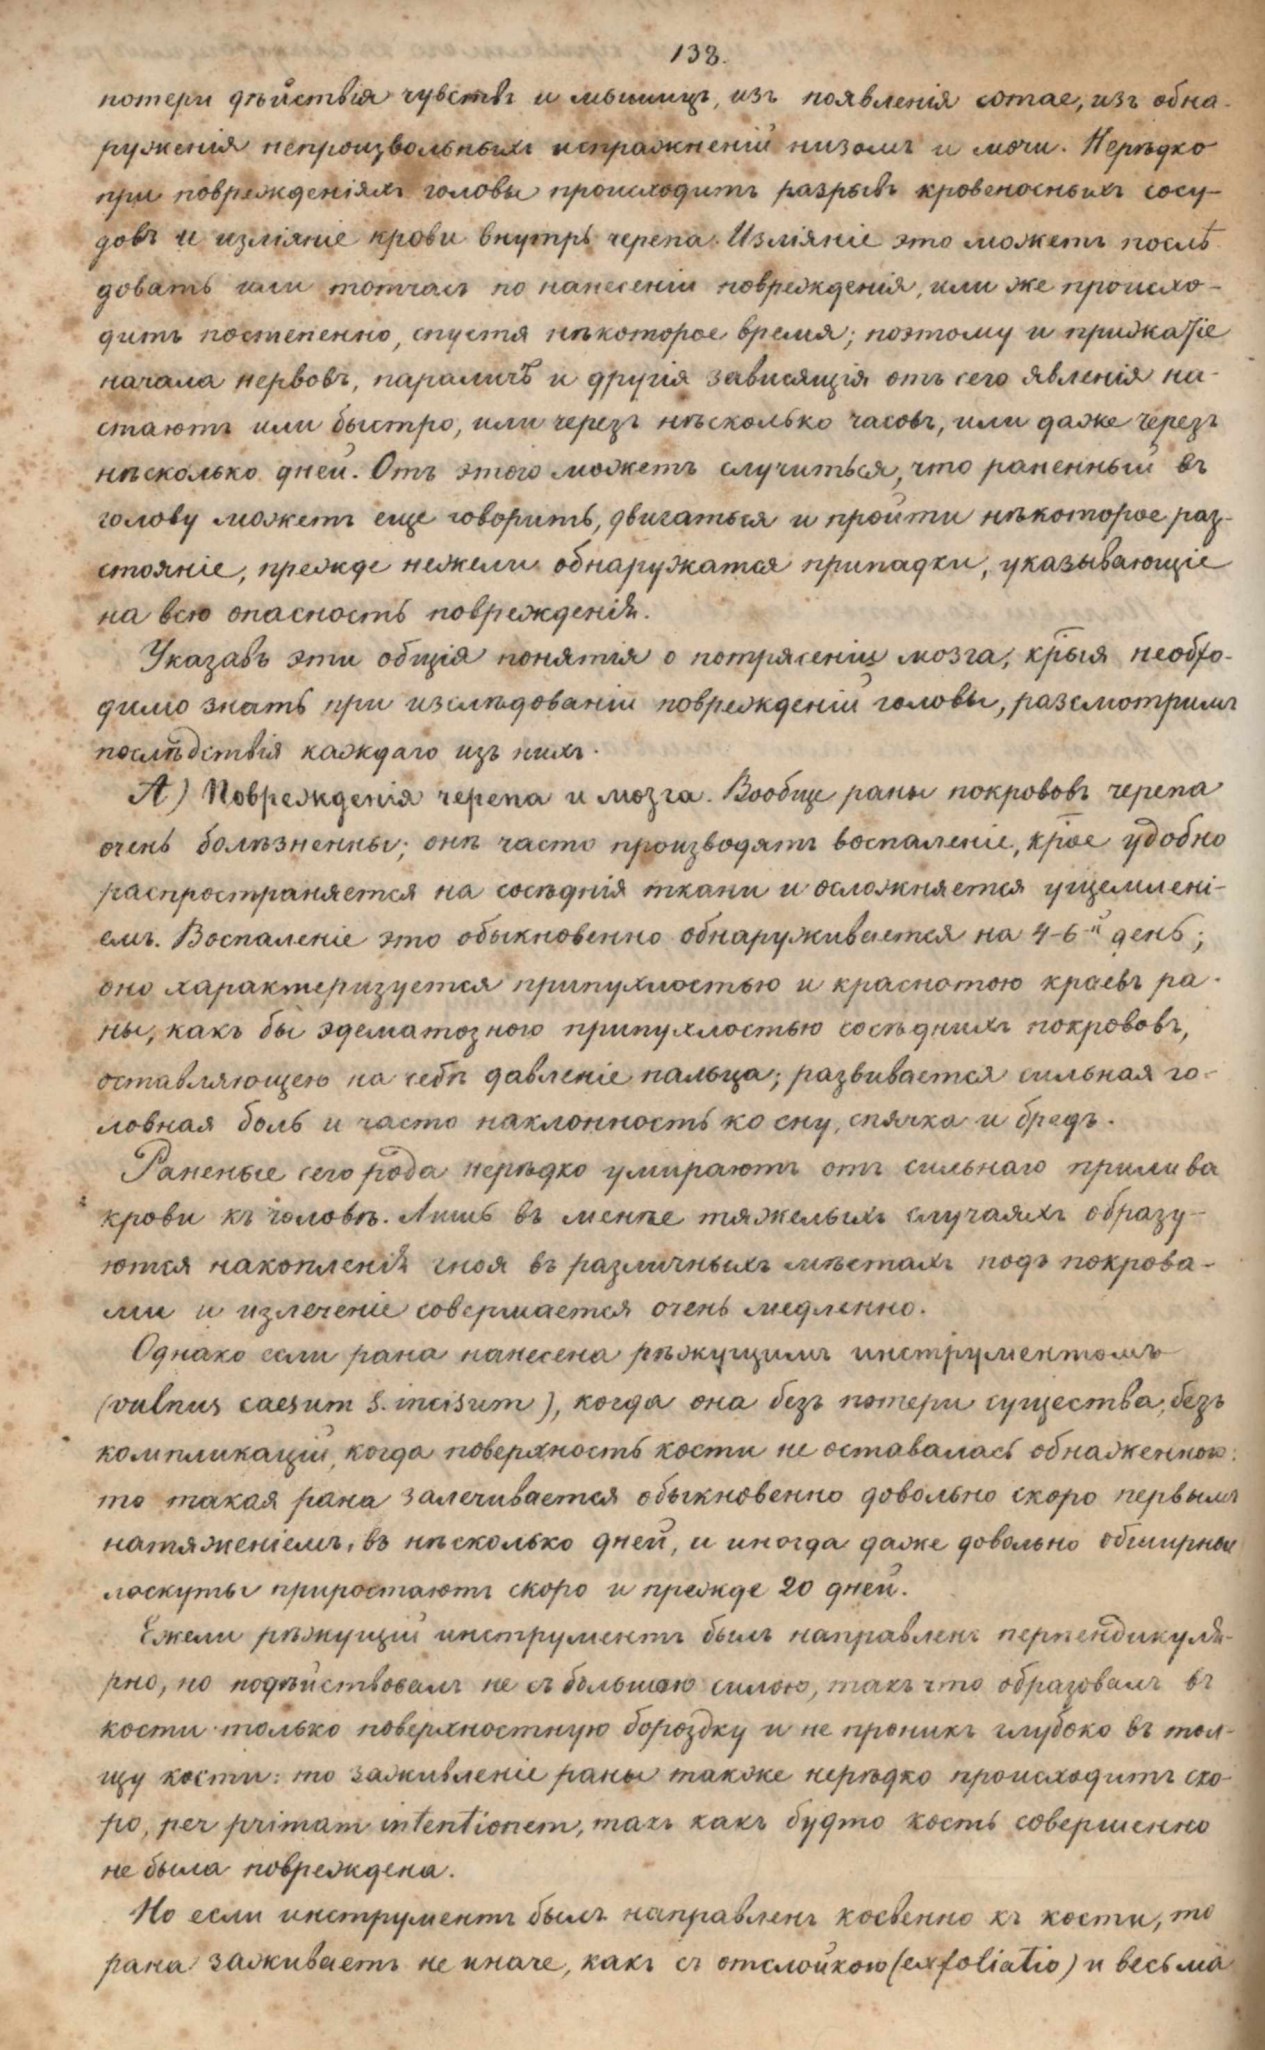 138.
потери дѣйствія чувствъ и мышицъ, изъ появленія comae, изъ обна-
руженія непроизвольныхъ испражненій низомъ и мочи. Нерѣдко
при поврежденіяхъ головы происходитъ разрывъ кровеносныхъ сосу-
довъ и изліяніе крови внутрь черепа. Изліяніе это можетъ послѣ-
довать или тотчасъ по нанесеніи поврежденія, или же происхо-
дитъ постепенно, спустя нѣкоторое время; поэтому и прижатіе
начала нервовъ, параличъ и другія зависящія отъ сего явленія на-
стаютъ или быстро, или черезъ нѣсколько часовъ, или даже черезъ
нѣсколько дней. Отъ этого можетъ случиться, что раненный въ
голову можетъ еще говорить, двигаться и пройти нѣкоторое раз-
стояніе, прежде нежели обнаружатся припадки, указывающіе
на всю опасность поврежденія.
Указавъ эти общія понятія о потрясеніи мозга, крыя необхо-
димо знать при изслѣдованіи поврежденій головы, разсмотримъ
послѣдствія каждаго изъ нихъ.
А) Поврежденія черепа и мозга. Вообще раны покрововъ черепа
очень болѣзненны; онѣ часто производятъ воспаленіе, крое удобно
распространяется на сосѣднія ткани и осложняется ущемлені-
емъ. Воспаленіе это обыкновенно обнаруживается на 4-6-й день;
оно характеризуется припухлостью и краснотою краевъ ра-
ны, какъ бы эдематозною припухлостью сосѣднихъ покрововъ,
оставляющею на себѣ давленіе пальца; развивается сильная го-
ловная боль и часто наклонность ко сну, спячка и бредъ.
Раненые сего рода нерѣдко умираютъ отъ сильнаго прилива
крови къ головѣ. Лишь въ менѣе тяжелыхъ случаяхъ образу-
ются накопленія гноя въ различныхъ мѣстахъ подъ покрова-
ми и излеченіе совершается очень медленно.
Однако если рана нанесена рѣжущимъ инструментомъ
(vulnus caesum s. incisum), когда она безъ потери существа, безъ
компликацій, когда поверхность кости не оставалась обнаженною:
то такая рана залечивается обыкновенно довольно скоро первымъ
натяженіемъ, въ нѣсколько дней, и иногда даже довольно обширные
лоскуты приростаютъ скоро и прежде 20 дней.
Ежели рѣжущій инструментъ былъ направленъ перпендикуля-
рно, но подѣйствовалъ не съ большою силою, такъ что образовалъ въ
кости только поверхностную бороздку и не проникъ глубоко въ тол-
щу кости: то заживленіе раны также нерѣдко происходитъ ско-
ро, per primam intentionem, такъ какъ будто кость совершенно
не была повреждена.
Но если инструментъ былъ направленъ косвенно къ кости, то
рана заживаетъ не иначе, какъ съ отслойкою (exfoliatio) и весьма